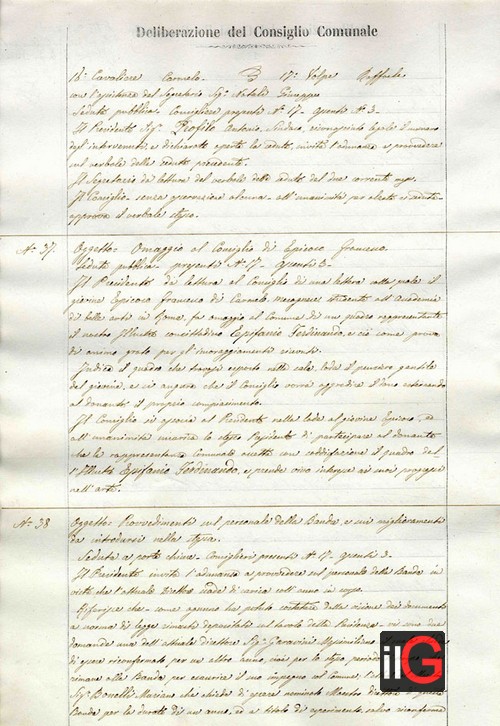 Deliberazione del Consiglio Comunale
16° Cavaliere Carmelo 17° Volpe Raffaele
con l'assistenza del Segretario Sig. Natale Giuseppe
Seduta pubblica. Consiglieri presenti N° 17 - assenti N° 3 -
Il Presidente Sig. Profilo Antonio, Sindaco, riconosciuto legale il numero
degl'intervenuti, e dichiarata aperta la seduta, invita l'adunanza a provvedere
sul verbale della seduta precedente.
Il Segretario dà lettura del verbale della seduta del due corrente mese.
Il Consiglio senza osservazione alcuna all'unanimità per alzata e seduta
approva il verbale stesso.
N° 37. Oggetto: Omaggio al Consiglio di Epicoco Francesco.
Seduta pubblica - presenti N° 17 - assenti 3 -
Il Presidente dà lettura al Consiglio di una lettera nella quale il
giovine Epicoco Francesco di Carmelo, mesagnese studente all'Accademia
di belle arti in Roma, fa omaggio al Comune di un quadro rappresentante
il nostro illustre concittadino Epifanio Ferdinando, e ciò come prova
di animo grato per gl'incoraggiamenti ricevuti.
Indica il quadro che trovasi esposto nella sala, loda il pensiero gentile
del giovine, e si augura che il Consiglio vorrà aggradire il dono esternando
al donante il proprio compiacimento.
Il Consiglio si associa al Presidente nella lode al giovine Epicoco, ed
all'unanimità incarica lo stesso Presidente di partecipare al donante
che la rappresentanza Comunale accetta con soddisfazione il quadro del
l'illustre Epifanio Ferdinando, e prende vivo interesse ai suoi progressi
nell'arte.
N° 38 Oggetto: Provvedimenti sul personale della Banda, e sui miglioramenti
da introdursi nella stessa.
Seduta a porte chiuse - Consiglieri presenti N° 17 - assenti 3 -
Il Presidente invita l'adunanza a provvedere sul personale della Banda in
vista che l'attuale Direttore scade di carica coll'anno in corso.
Riferisce che - come ognuno ha potuto constatare dalla visione dei documenti
a norma di legge depositati sul tavolo della Presidenza - vi sono due
domande una dell'attuale Direttore Sig. Garavini Massimiliano
di essere riconfermato per un altro anno,
rimane alla Banda per esaurire il suo impegno col Comune, l'altra
Sig. Bonelli Mariano che chiede di essere nominato Maestro Direttore
Banda per la durata di un anno, ed a titolo di esperimento, salvo riconferma
ilG